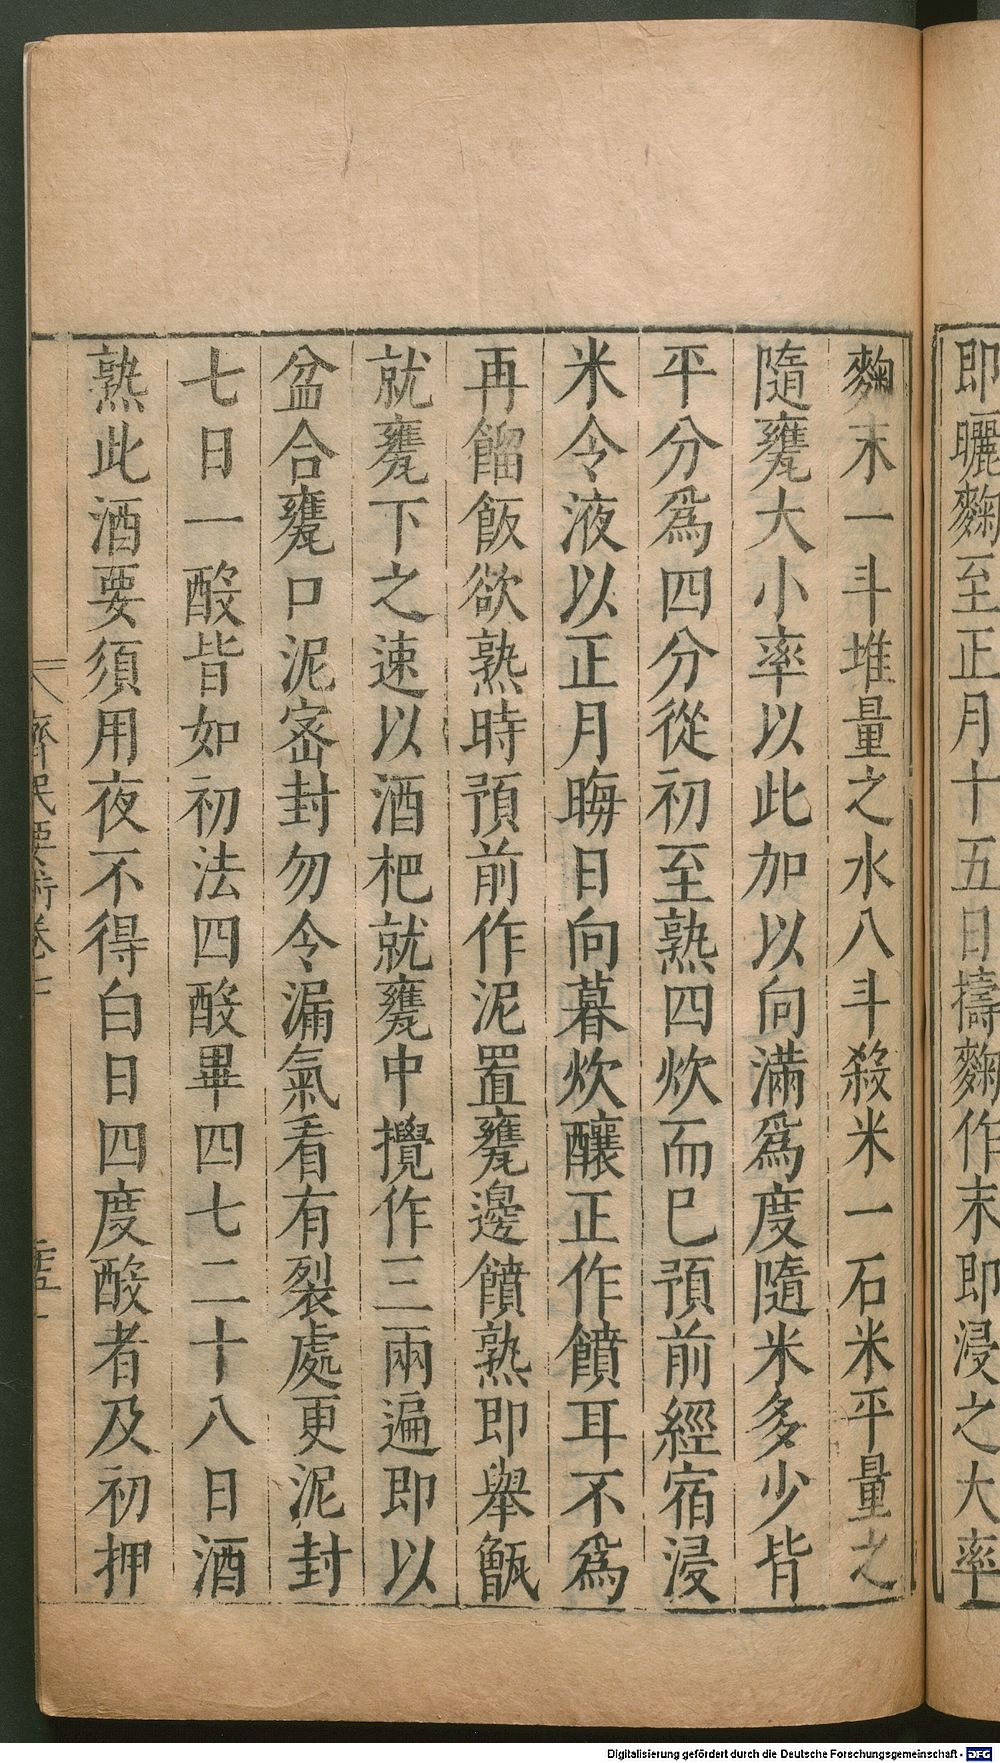 即曬麴至正月十五日擣麴作末即浸之大率
麴末一斗堆量之水八斗殺米一石米平量之
隨甕大小率以此加以向滿爲度隨米多少皆
平分爲四分從初至熟四炊而已預前經宿浸
米令液以正月晦日向暮炊釀正作饙耳不爲
再餾飯欲熟時預前作泥置甕邊饙熟即舉甑
就甕下之速以酒杷就甕中攪作三兩遍即以
盆合甕口泥密封勿令漏氣看有裂處更泥封
七日一酘皆如初法四酘畢四七二十八日酒
熟此酒要須用夜不得白日四度酘者及初押
齊民要術卷七
Digitalisierung gefördert durch die Deutsche Forschungsgemeinschaft - DFG